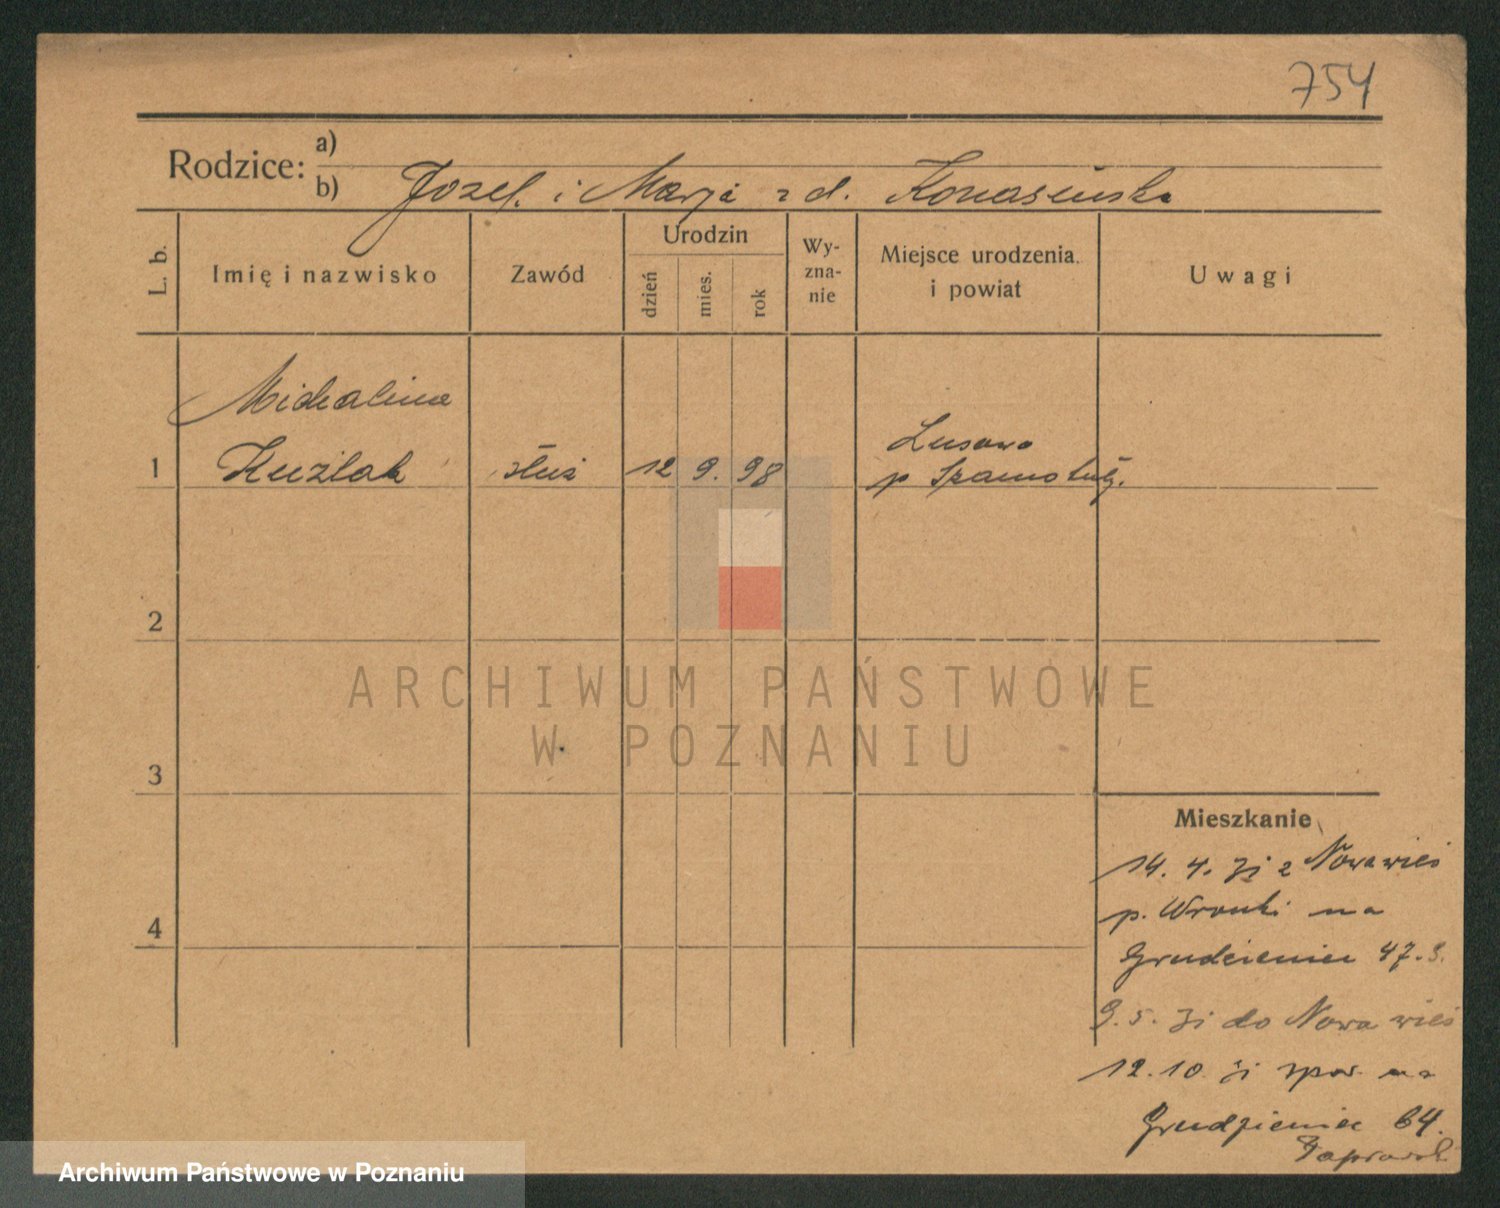 754
Rodzice: a)
b) Józef. i Marja z d. Konasińska
L. b.
Imię i nazwisko
Zawód
Urodzin
dzień
mies.
rok
Wy-
zna-
nie
Miejsce urodzenia
i powiat
Uwagi
Michalina
1 Kuźlak służ 12 9. 98
Lusowo
p Szamotuły.
2
3
4
ARCHIWUM PAŃSTWOWE
W POZNANIU
Mieszkanie
14. 4. 31 z Nowawieś
p. Wronki na
Grudzieniec 47.
9. 5. 31 do Nowa wieś
12. 10. 31 na
Grudzieniec 64.
Archiwum Państwowe w Poznaniu